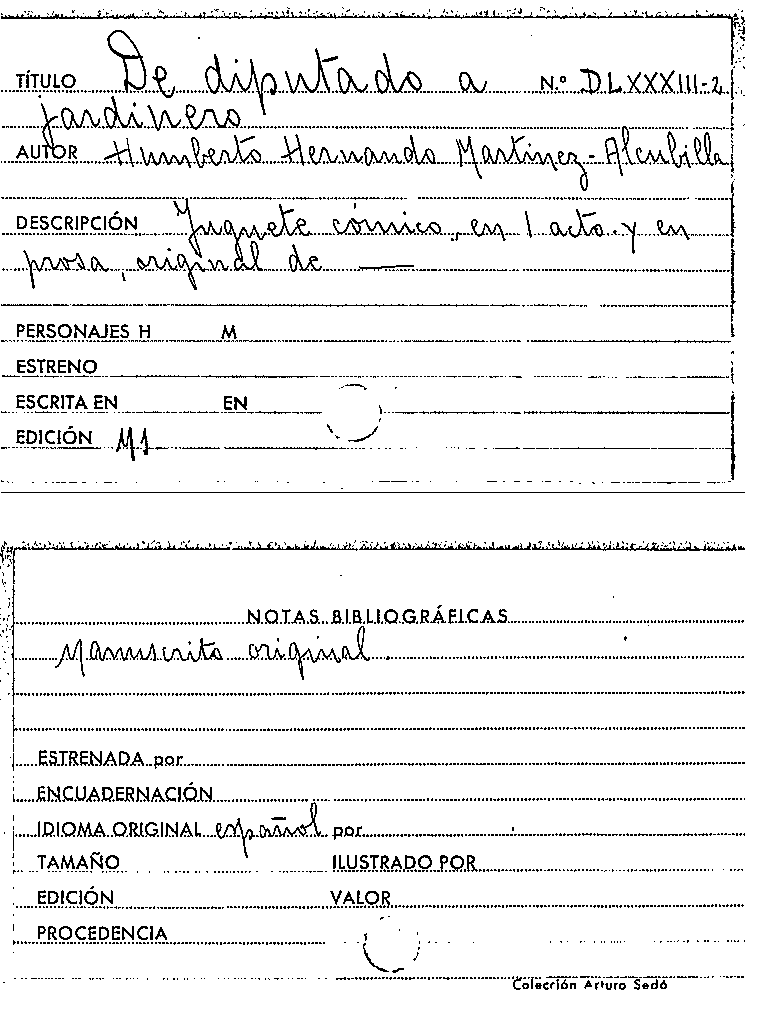 TÍTULO De diputado a N.º DLXXXIII-2
jardinero
AUTOR Humberto Hernando Martinez-Alcubilla
DESCRIPCIÓN Juguete cómico, en 1 acto y en
prosa, original de —
PERSONAJES H M
ESTRENO
ESCRITA EN EN
EDICIÓN MS
NOTAS BIBLIOGRÁFICAS
Manuscrito original.
ESTRENADA por
ENCUADERNACIÓN
IDIOMA ORIGINAL español por
TAMAÑO ILUSTRADO POR
EDICIÓN VALOR
PROCEDENCIA
Colección Arturo Sedó